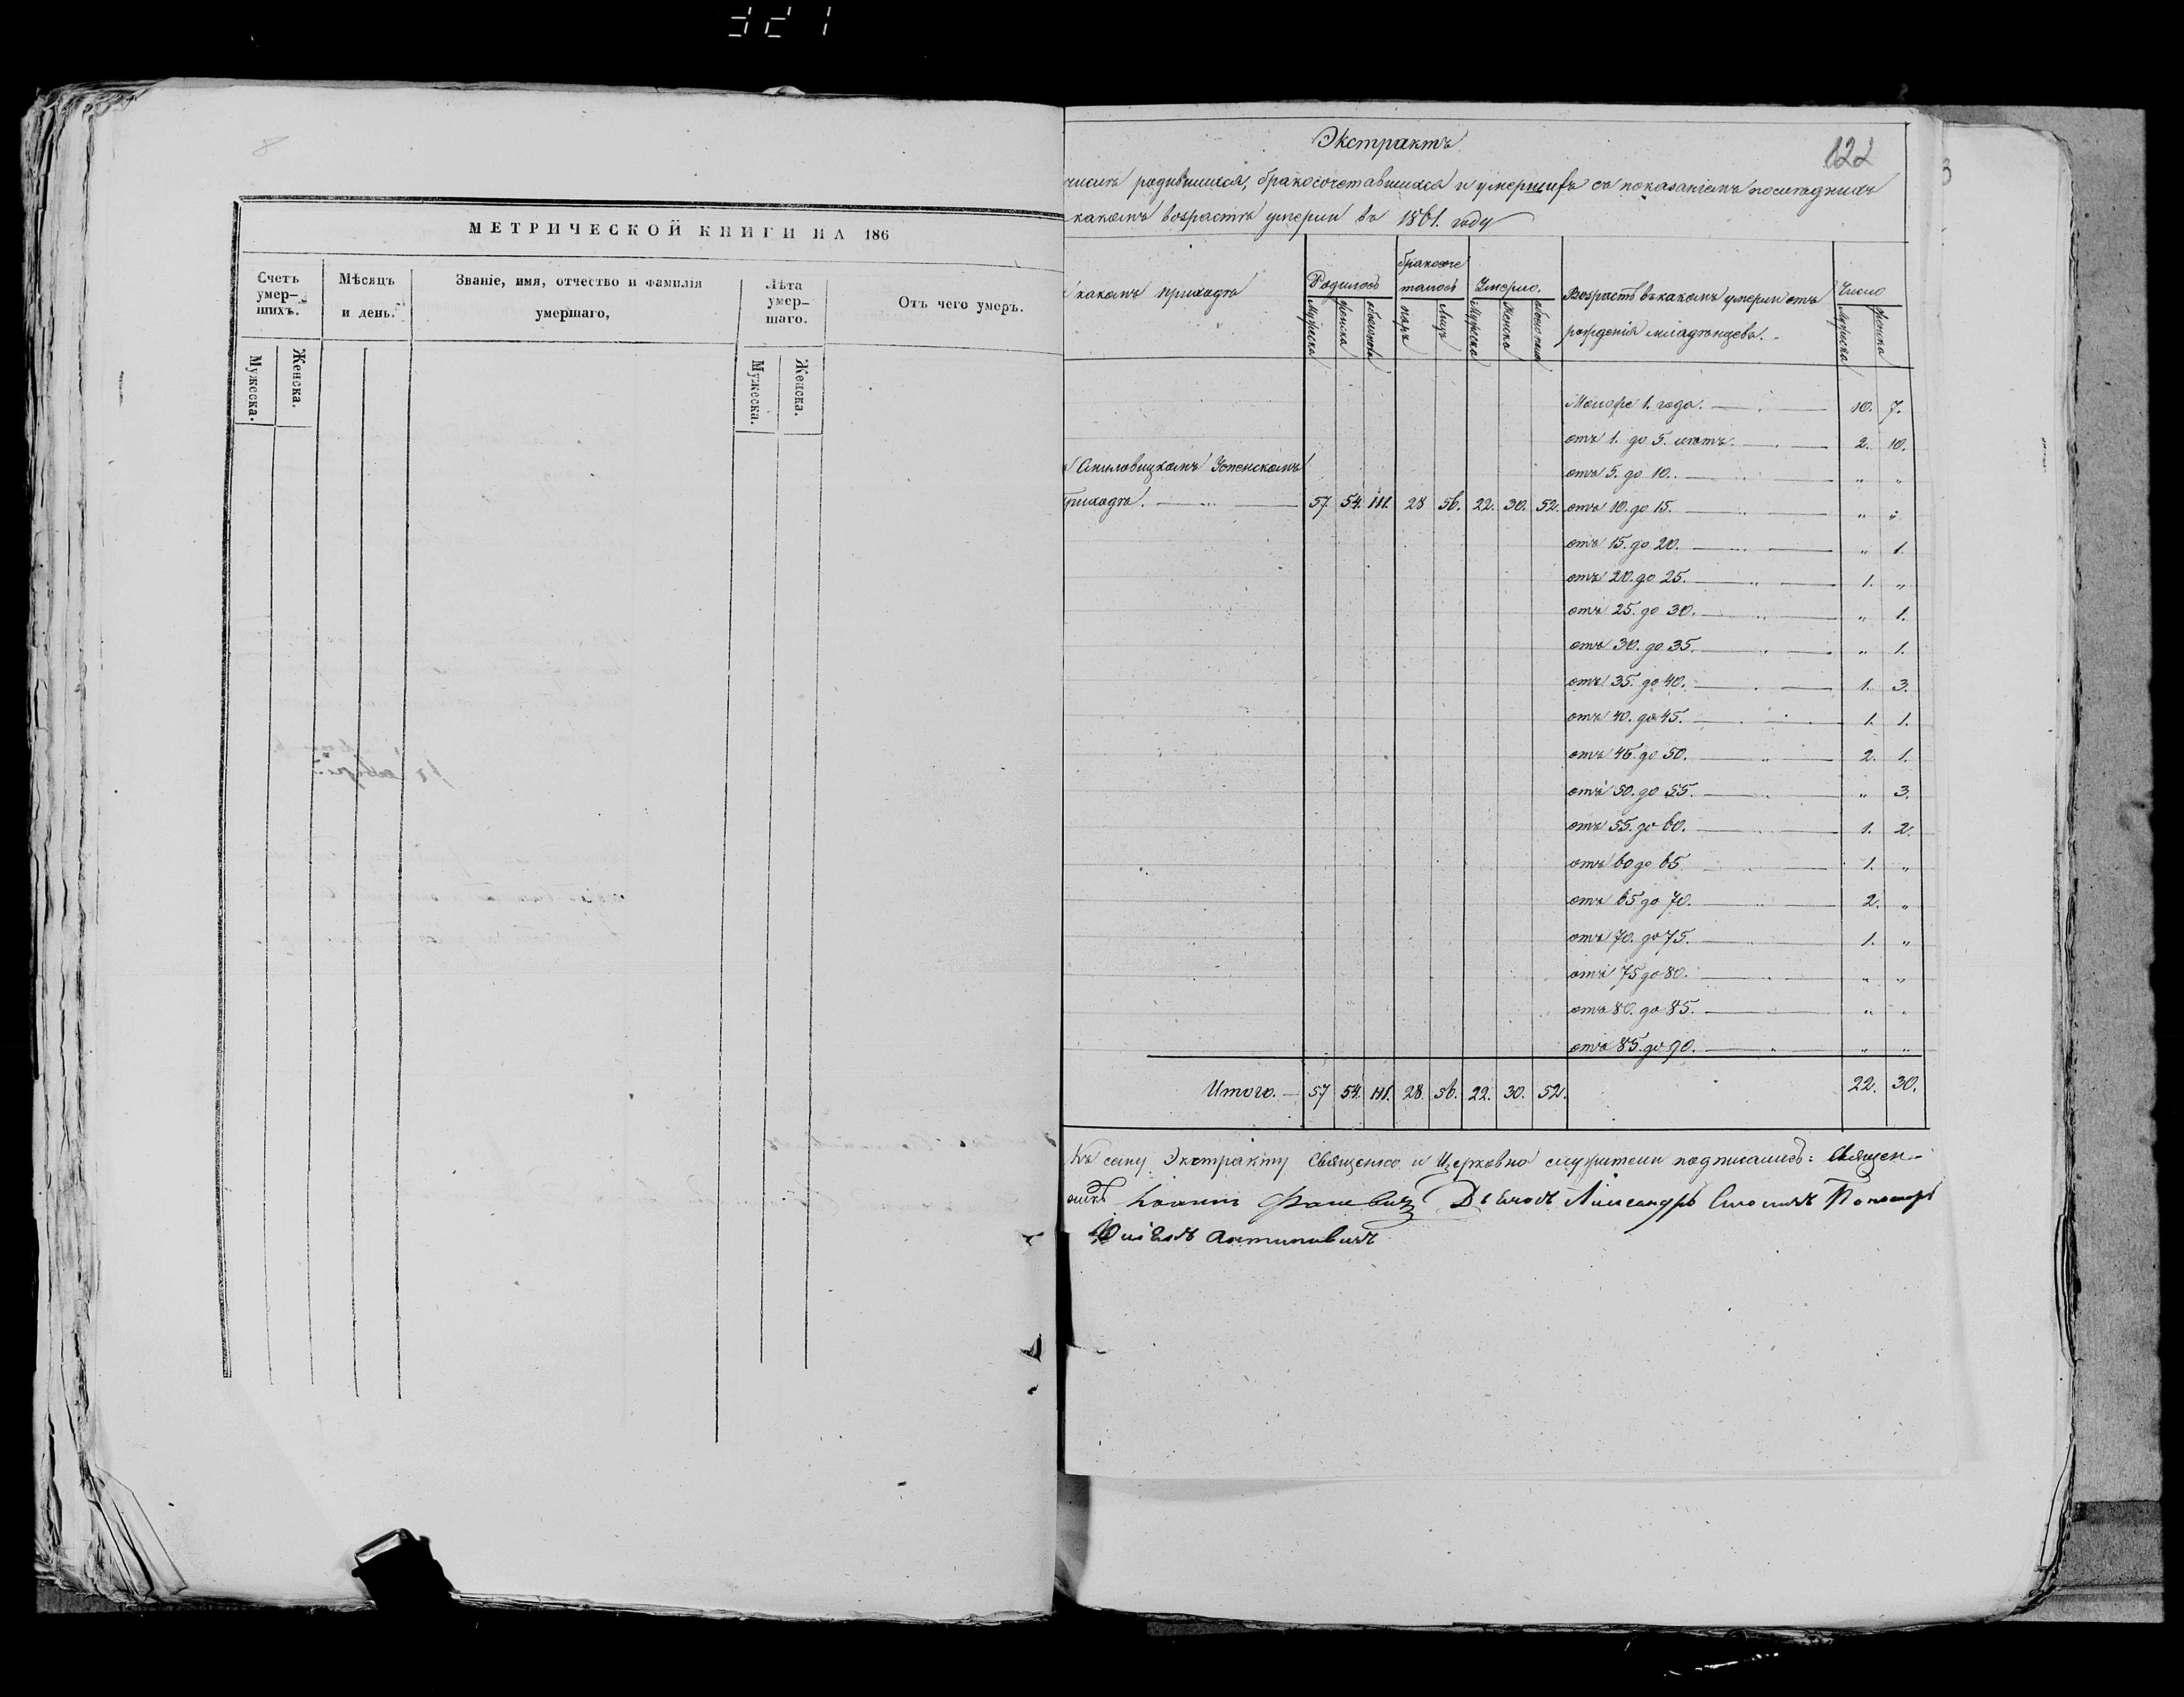 МЕТРИЧЕСКОЙ КНИГИ НА 186
Счетъ умер-шихъ.
Мужеска.
Женска.
Мѣсяцъ и день.
Званіе, имя, отчество и фамилія умершаго,
Лѣта умер-шаго.
Мужеска.
Женска.
Отъ чего умеръ.
122
Экстрактъ
числѣ родившихся, бракосочетавшихся и умершихъ съ показаніемъ послѣднихъ
какомъ возрастѣ умерли въ 1861. году
какомъ приходѣ
Родилось
Мужеска
Женска
обоихъ
бракосоче
талось
паръ
лицъ
Умерло.
Мужеска
Женска
Возрастъ въ какомъ умерли отъ
рожденія младѣнцевъ.
Число
Мужеска
Женска
Менѣе 1. года. 10. 7.
отъ 1. до 5. лѣтъ. 2. 10.
Смиловицкомъ Успенскомъ
отъ 5. до 10. „ „
приходѣ. 57. 54. 111. 28 56. 22. 30. 52. отъ 10. до 15. „ „
отъ 15. до 20. „ 1.
отъ 20. до 25. 1. „
отъ 25. до 30. „ 1.
отъ 30. до 35. „ 1.
отъ 35. до 40. 1. 3.
отъ 40. до 45. 1. 1.
отъ 45. до 50. 2. 1.
отъ 50. до 55. „ 3.
отъ 55. до 60. 1. 2.
отъ 60 до 65. 1. „
отъ 65 до 70. 2. „
отъ 70. до 75. 1. „
отъ 75 до 80. „ „
отъ 80. до 85. „ „
отъ 85. до 90. „ „
Итого. 57 54. 111. 28. 56. 22. 30. 52. 22. 30.
Къ сему Экстракту Священно и Церковно служители подписались: Священ-
никъ Іоаннъ Дьячокъ Александръ Пономарь